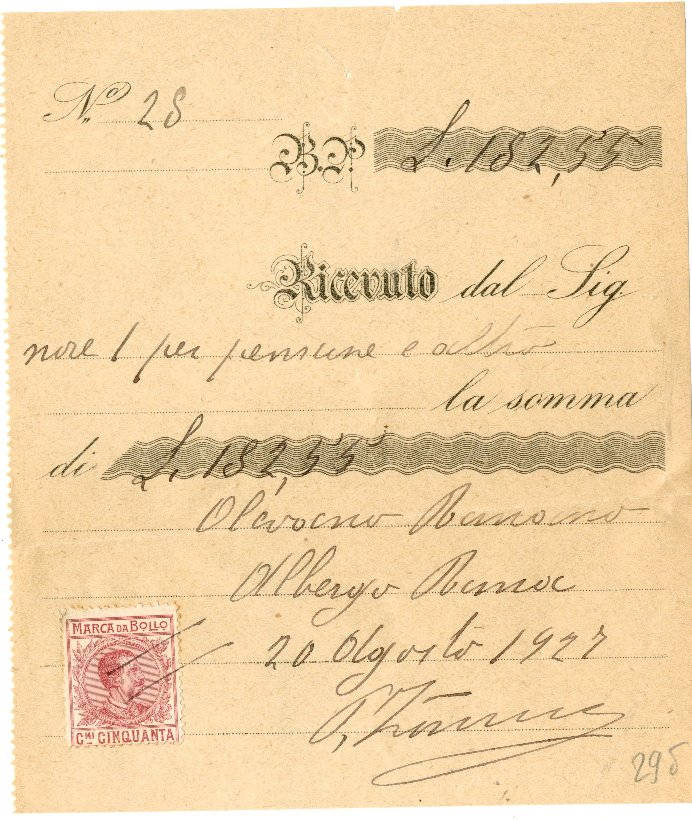 No 28
B.P. L. 182,55
Ricevuto dal Sig
nore 1 per pensione e altro
la somma
di L. 182,55
Olevano Romano
Albergo Roma
MARCA DA BOLLO
20 Agosto 1927
CMI CINQUANTA
295